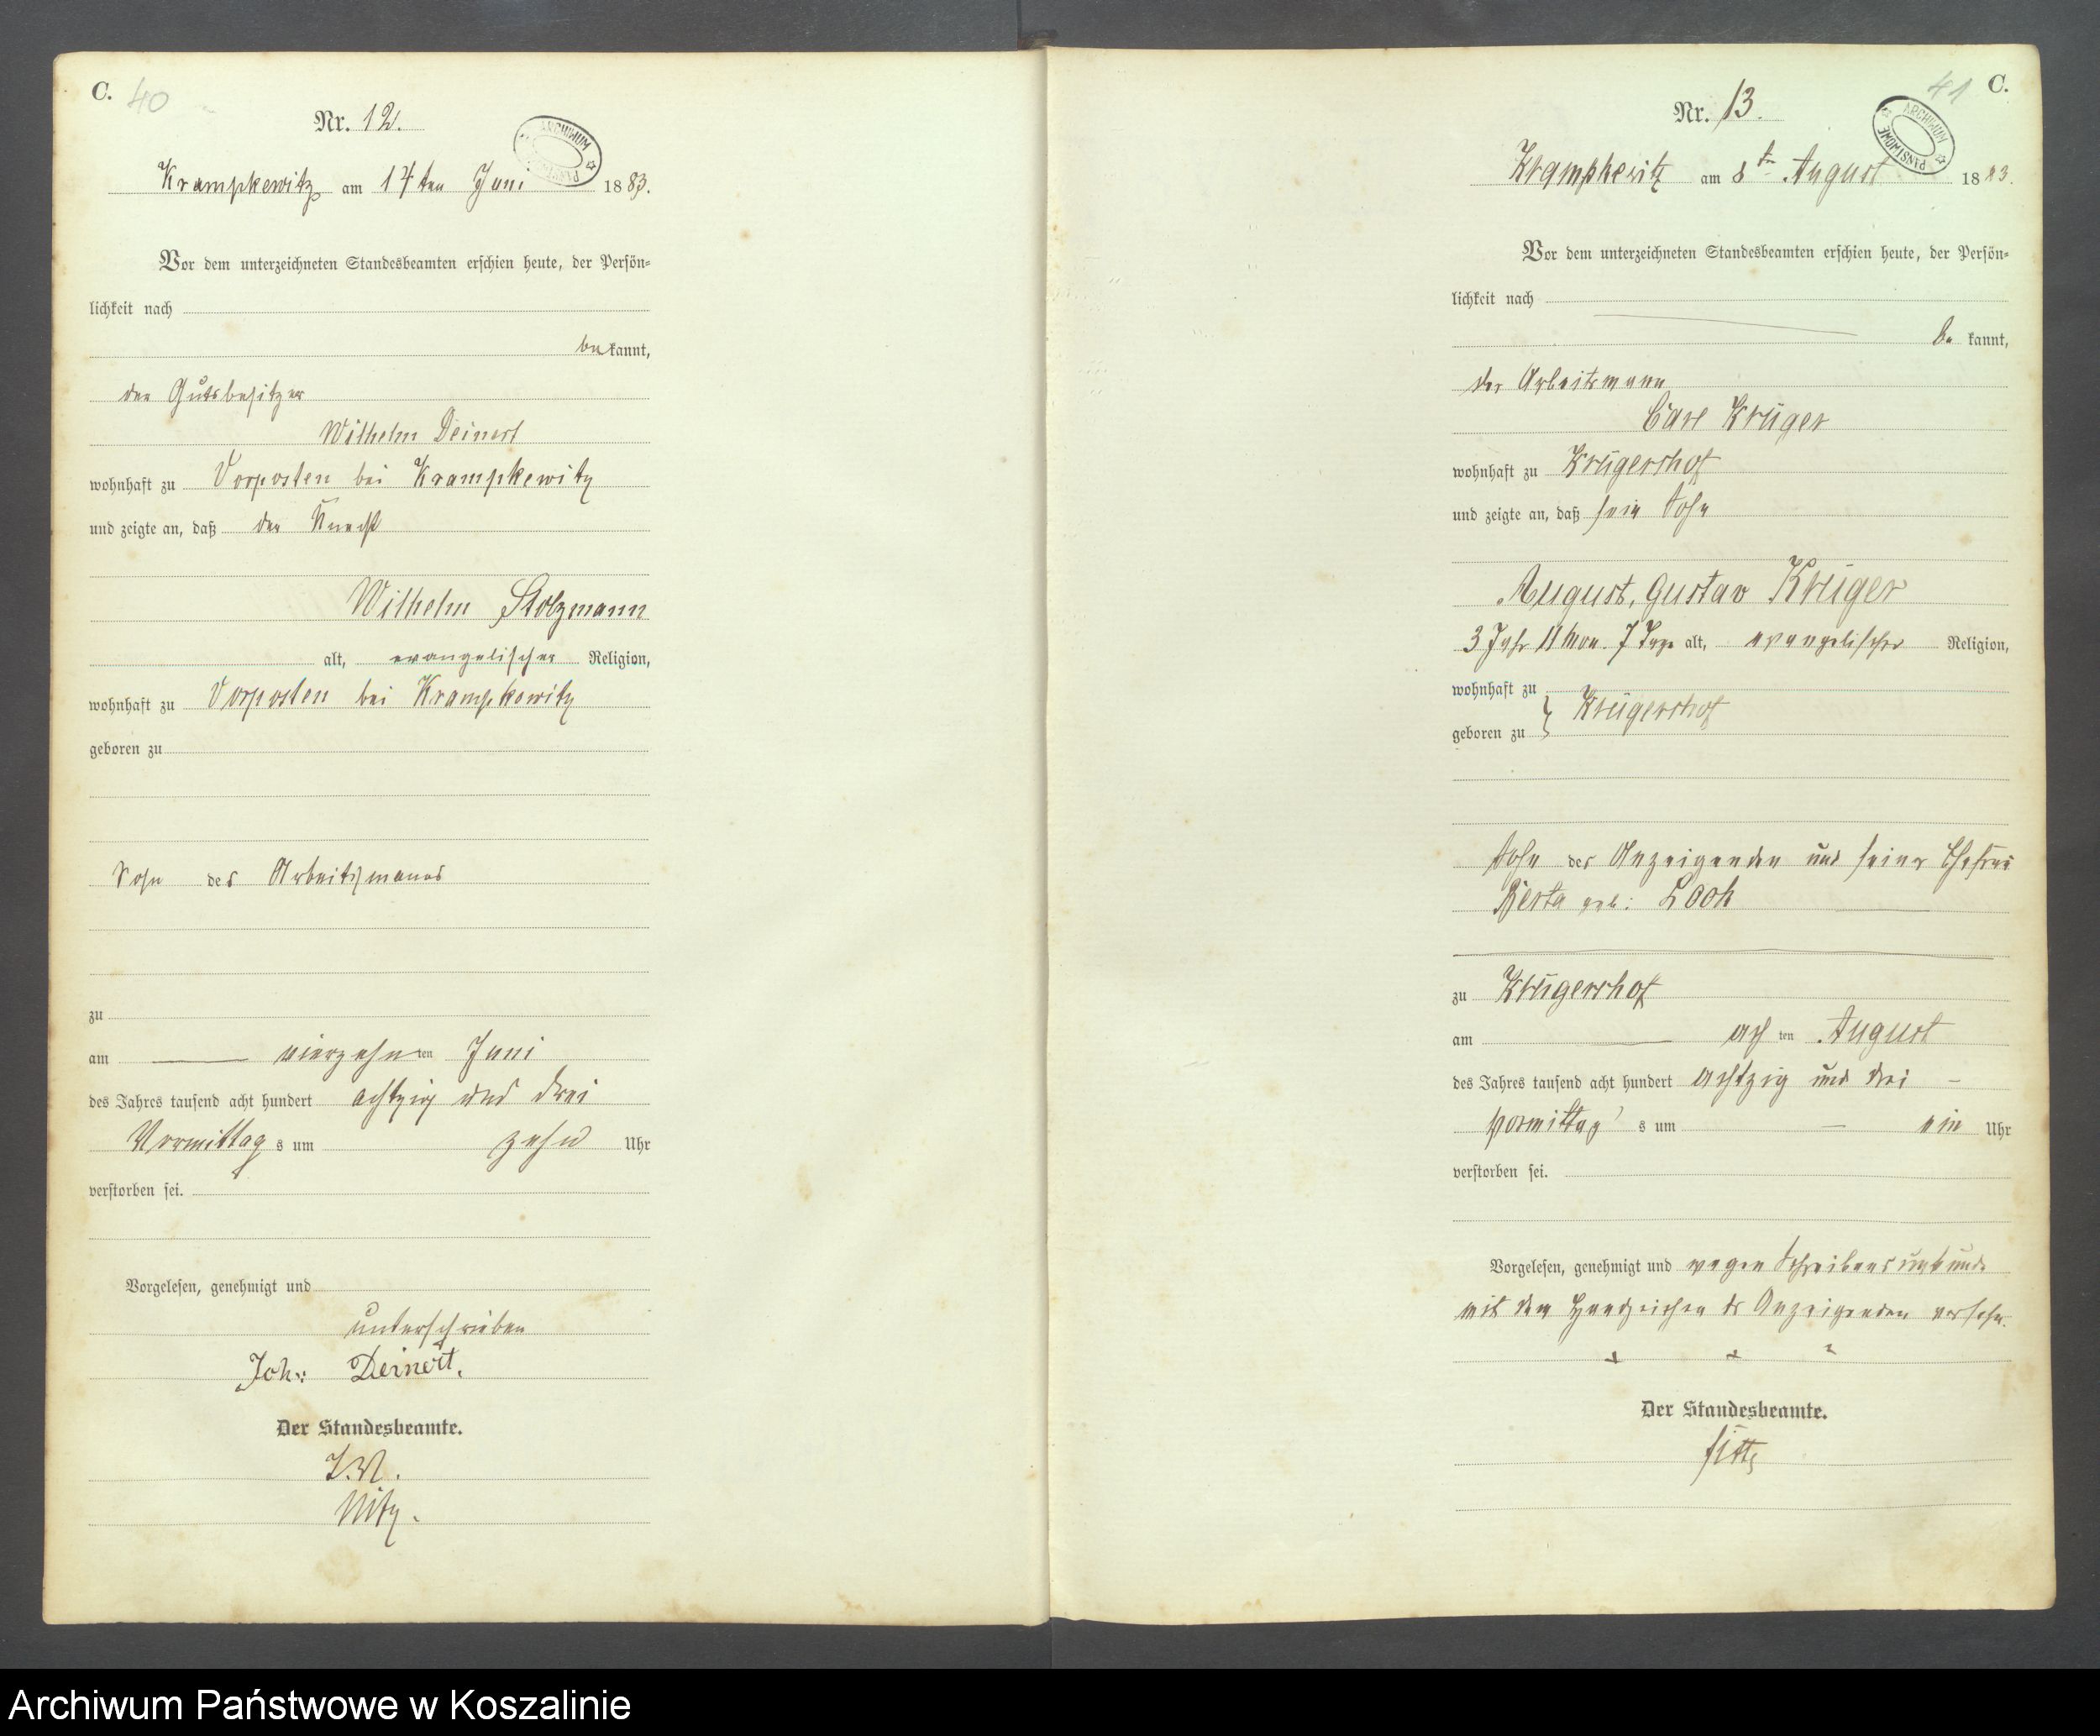 C. 40
Nr. 12.
ARCHIWUM
Krampkewitz am 14ten Juni 1883.
Vor dem unterzeichneten Standesbeamten erschien heute, der Persön-
lichkeit nach
be kannt,
der Gutsbesitzer
Wilhelm Deinert
wohnhaft zu Vorposten bei Krampkewitz
und zeigte an, daß der Knecht
Wilhelm Stolzmann
alt, evangelischer Religion,
wohnhaft zu Vorposten bei Krampkewitz
geboren zu
Sohn des Arbeitsmannes
zu
am vierzehn ten Juni
des Jahres tausend acht hundert achtzig und drei
Vormittag s um zehn Uhr
verstorben sei.
Vorgelesen, genehmigt und
unterschrieben
Joh: Deinert.
Der Standesbeamte.
I.V.
41 C.
Nr. 13.
ARCHIWUM PAŃSTWOWE
Krampkewitz am 8ten August 1883.
Vor dem unterzeichneten Standesbeamten erschien heute, der Persön-
lichkeit nach
be kannt,
der Arbeitsmann
Carl Krüger
wohnhaft zu Krügershof
und zeigte an, daß sein Sohn
August, Gustav Krüger
3 Jahr 11 Mon. 7 Tage alt, evangelischer Religion,
wohnhaft zu
geboren zu } Krügershof
Sohn des Anzeigenden und seiner Ehefrau
Berta geb: Look
zu Krügershof
am ach ten August
des Jahres tausend acht hundert achtzig und drei
Vormittag s um ein Uhr
verstorben sei.
Vorgelesen, genehmigt und wegen Schreibensunkunde
mit dem Handzeichen des Anzeigenden versehn.
+ + +
Der Standesbeamte.
Archiwum Państwowe w Koszalinie